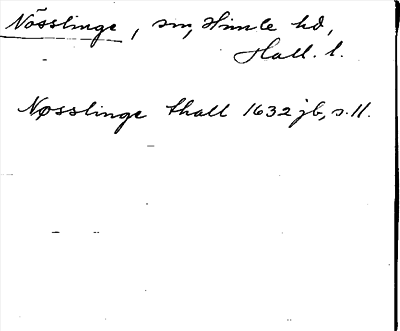 Nösslinge, sn, Himle hd,
Hall. l.
Nøsslinge thall 1632 jb, s. 11.